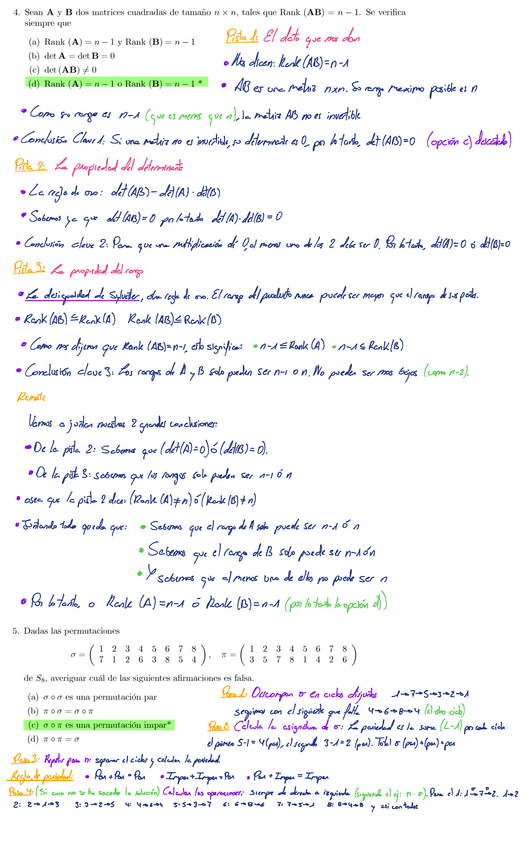 4. Sean A y B dos matrices cuadradas de tamaño n × n, tales que Rank (AB) = n − 1. Se verifica
siempre que
(a) Rank (A) = n − 1 y Rank (B) = n − 1
(b) det A = det B = 0
(c) det (AB) ≠ 0
(d) Rank (A) = n − 1 o Rank (B) = n − 1 *
Pista 1: El dato que nos dan
• Nos dicen: Rank(AB)=n-1
• AB es una matriz nxn. Su rango maximo posible es n
• Como su rango es n-1 (que es menos que n), la matriz AB no es invertible
• Conclusión Clave 1: Si una matriz no es invertible, su determinante es 0, por lo tanto, det(AB)=0 (opción c) descartada)
Pista 2: La propiedad del determinante
• La regla de oro: det(AB)=det(A)·det(B)
• Sabemos ya que det(AB)=0 por lo tanto det(A)·det(B)=0
• Conclusión clave 2: Para que una multiplicación dé 0, al menos uno de los 2 debe ser 0. Por lo tanto, det(A)=0 ó det(B)=0
Pista 3: La propiedad del rango
• La desigualdad de Sylvester, otra regla de oro. El rango del producto nunca puede ser mayor que el rango de sus partes.
• Rank(AB)≤Rank(A) Rank(AB)≤Rank(B)
• Como nos dijeron que Rank(AB)=n-1, esto significa: • n-1≤Rank(A) • n-1≤Rank(B)
• Conclusión clave 3: Los rangos de A y B solo pueden ser n-1 o n. No pueden ser mas bajos (como n-2).
Remate
Vamos a juntar nuestras 2 grandes conclusiones:
• De la pista 2: Sabemos que (det(A)=0) ó (det(B)=0).
• De la pista 3: sabemos que los rangos solo pueden ser n-1 ó n
• osea que la pista 2 dice: (Rank(A)≠n) ó (Rank(B)≠n)
• Juntando todo queda que: • Sabemos que el rango de A solo puede ser n-1 ó n
• Sabemos que el rango de B solo puede ser n-1 ó n
• Y sabemos que al menos uno de ellos no puede ser n
• Por lo tanto, o Rank (A)=n-1 ó Rank (B)=n-1 (por lo tanto la opción d))
5. Dadas las permutaciones
σ = ( 1 2 3 4 5 6 7 8 ), π = ( 1 2 3 4 5 6 7 8 )
7 1 2 6 3 8 5 4 3 5 7 8 1 4 2 6
de S8, averiguar cuál de las siguientes afirmaciones es falsa.
(a) σ ∘ σ es una permutación par
(b) π ∘ σ = σ ∘ π
(c) σ ∘ π es una permutación impar*
(d) π ∘ π = σ
Paso 1: Descomponer σ en ciclos disjuntos 1→7→5→3→2→1
seguimos con el siguiente que falta 4→6→8→4 (el otro ciclo)
Paso 2: Calcula la signatura de σ: La paridad es la suma (L-1) por cada ciclo
el primero 5-1=4 (par), el segundo 3-1=2 (par). Total σ (par)+(par)=par
Paso 3: Repetir para π: separar el ciclos y calcular la paridad
Regla de paridad: • Par+Par=Par • Impar+Impar=Par • Par+Impar=Impar
Paso 4: (Si aun no se ha sacado la solución) Calcular las operaciones: siempre de derecha a izquierda (siguiendo el ej: π∘σ). Para el 1: 1→7→2. 1→2
2: 2→1→3 3: 3→2→5 4: 4→6→4 5: 5→3→7 6: 6→8→6 7: 7→5→1 8: 8→4→8 y asi con todas